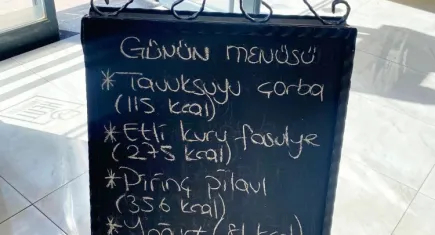 Günün menüsü
* Tavuksuyu çorba
(115 kcal)
* Etli kuru fasulye
(275 kcal)
* Pirinç pilavı
(356 kcal)
* Yoğurt (81 kcal)